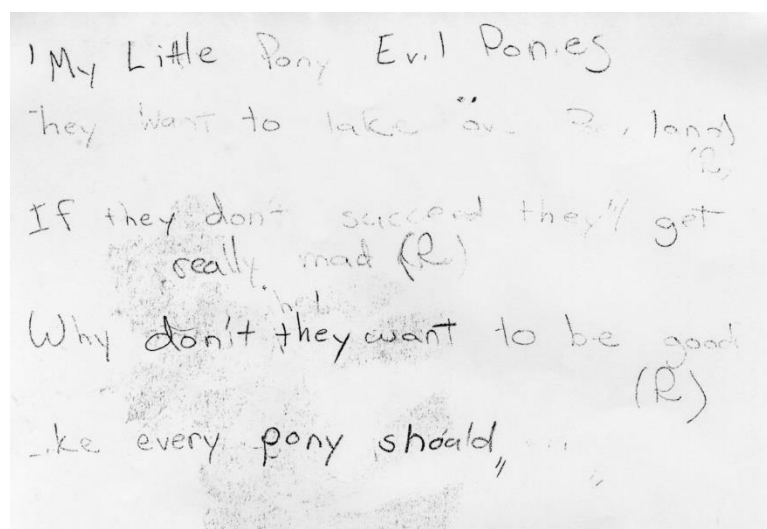 'My Little Pony Evil Ponies
They want to take over land
(R)
If they don't succeed they'll get
really mad (R)
Why don't they want to be good
(R)
like every pony should,,